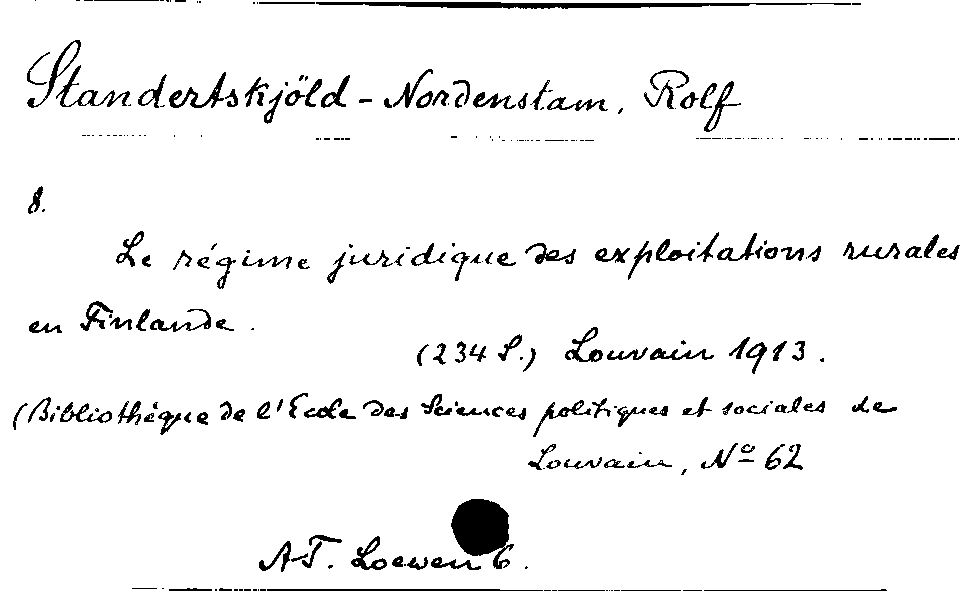 Standertskjöld - Nordenstam, Rolf
8.
Le régime juridique des exploitations rurales
en Finlande.
(234 S.) Louvain 1913.
(Bibliothèque de l'Ecole des Sciences politiques et sociales de
Louvain, Nº 62
AT. Loewen 6.